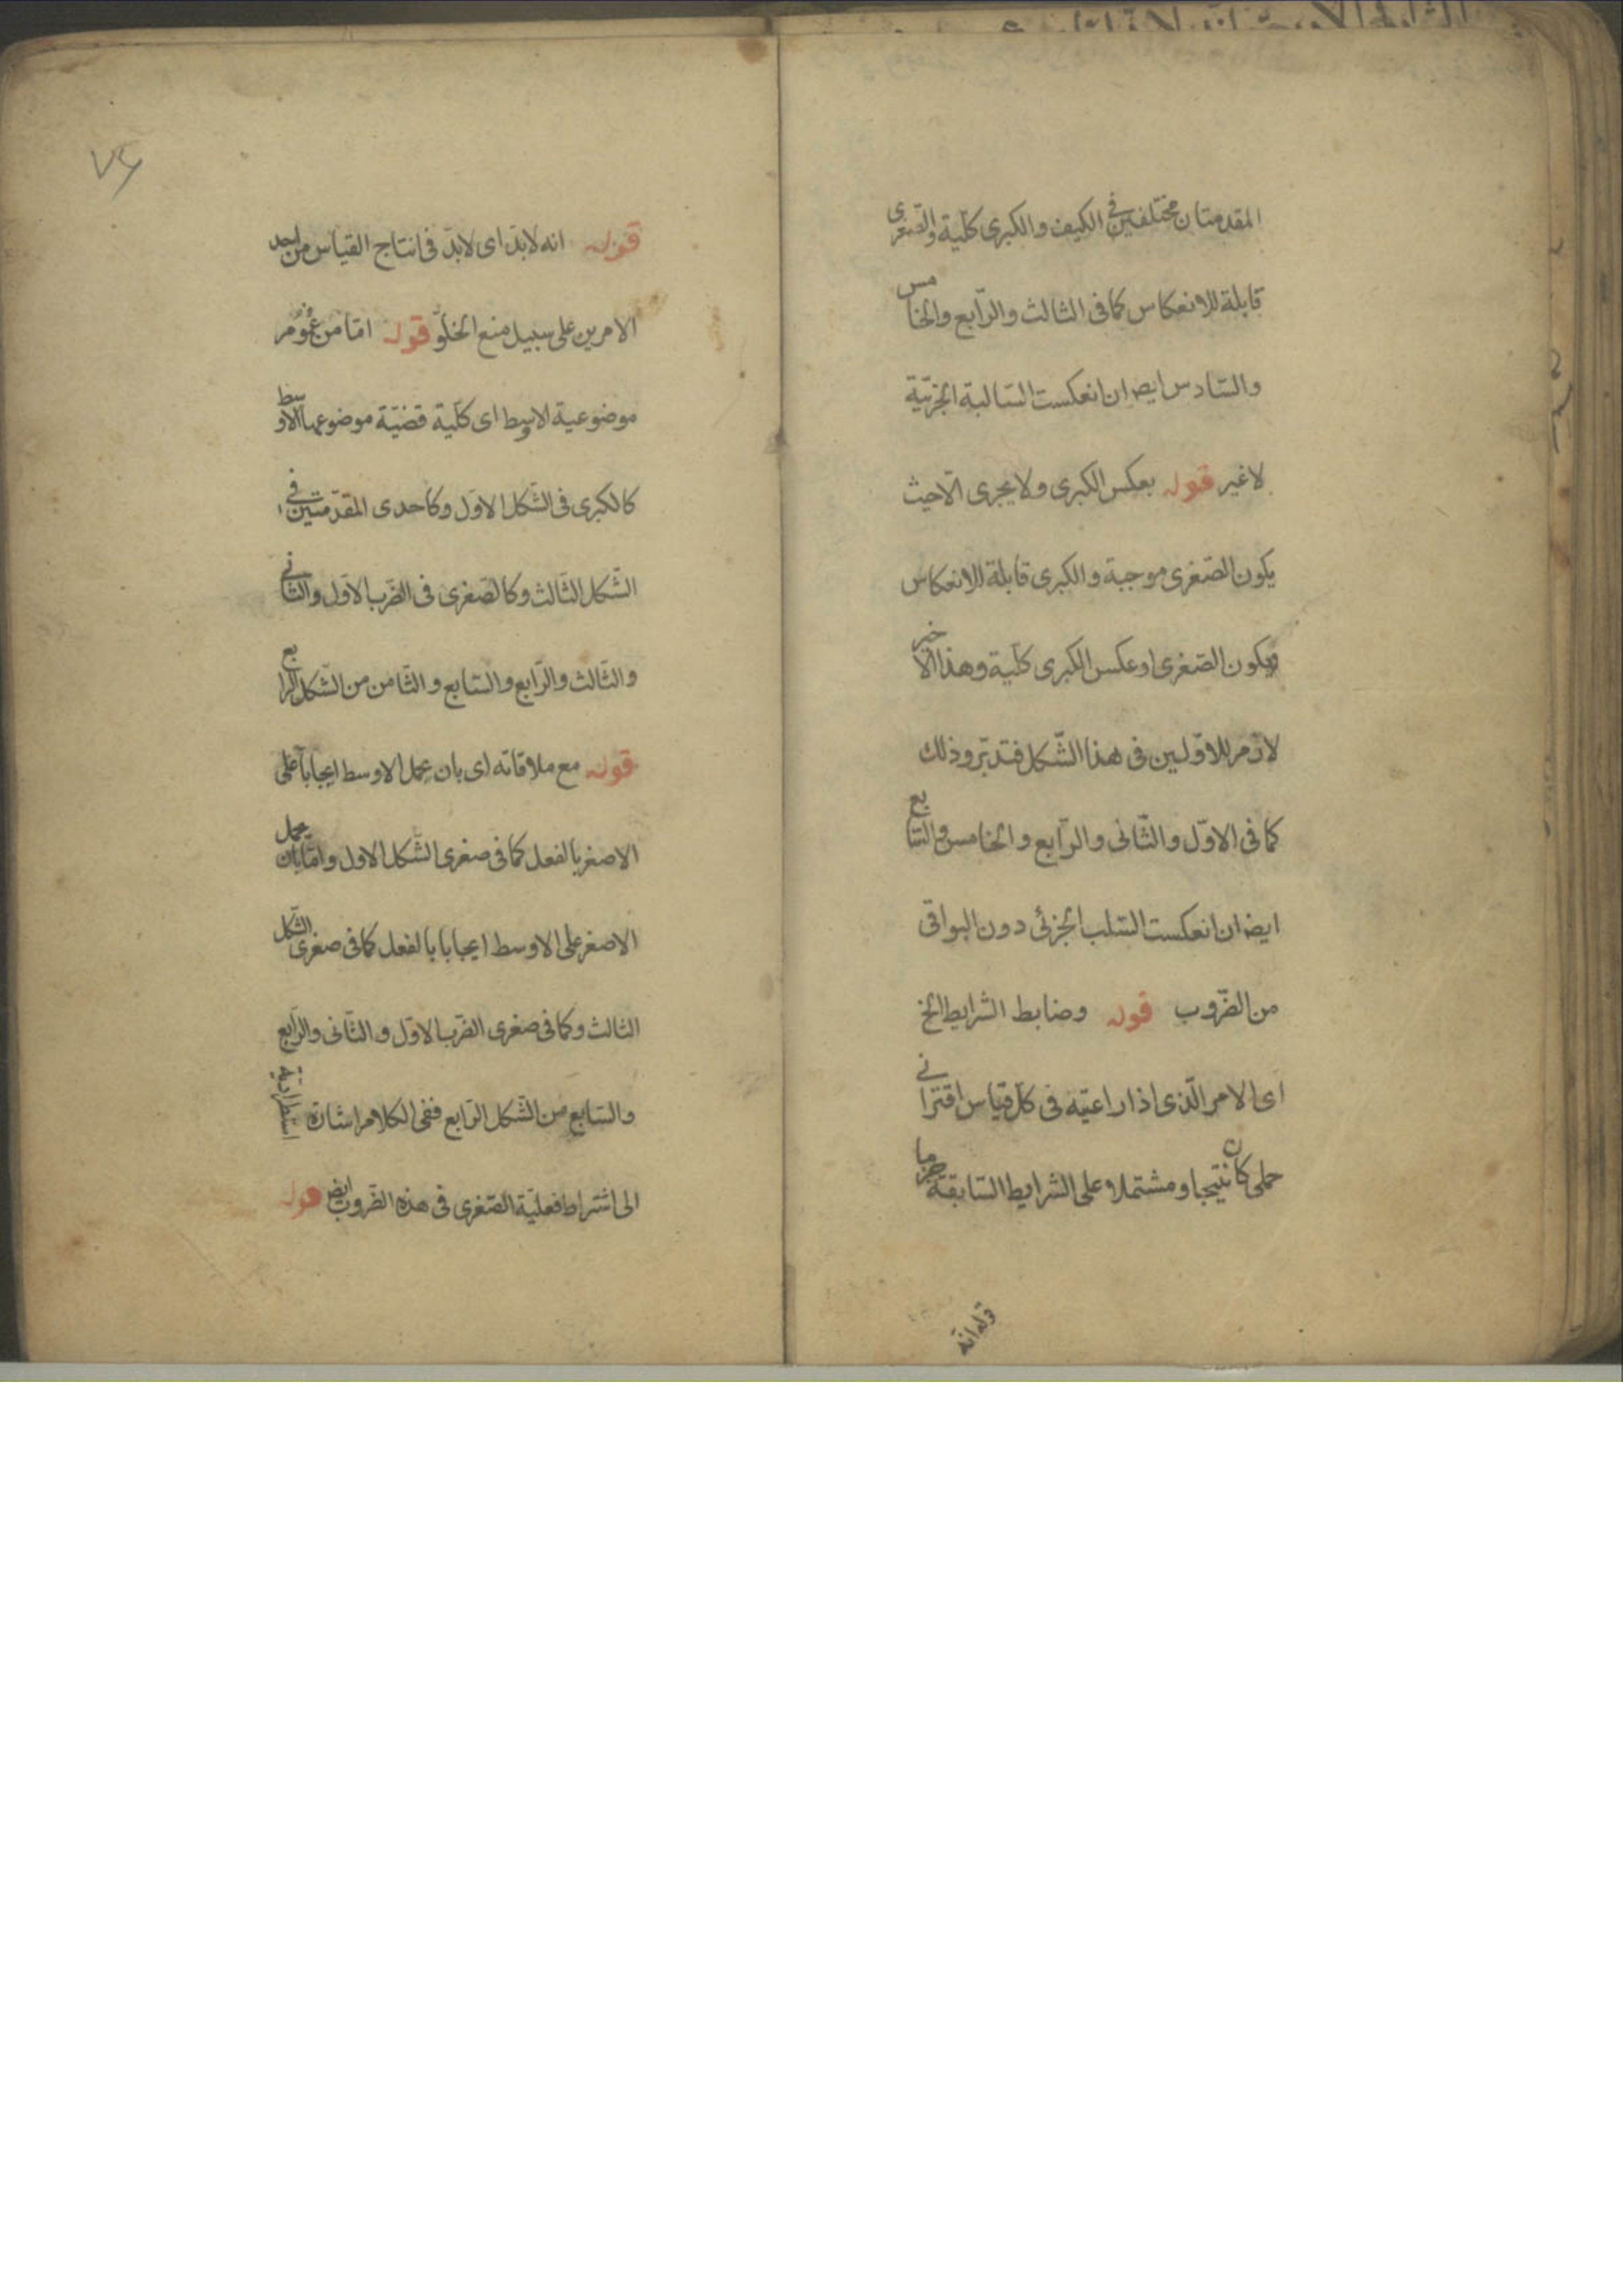 المقدمتان مختلفين فى الكيف والكبرى كلّية والصّغرى
قابلة للانعكاس كما فى الثالث والرّابع والخامس
والسّادس ايض ان انعكست السّالبة الجزئيّة
لا غير قوله بعكس الكبرى ولا يجرى الّا حيث
يكون الصّغرى موجبة والكبرى قابلة للانعكاس
ويكون الصّغرى او عكس الكبرى كلّية وهذا الاخير
لازم للاوّلين فى هذا الشّكل فتدبّر وذلك
كما فى الاوّل والثّانى والرّابع والخامس والسّابع
ايض ان انعكست السّلب الجزئى دون البواقى
من الضّروب قوله وضابط الشرايط الخ
اى الامر الّذى اذا راعيته فى كلّ قياس اقترانى
حملى كان نتيجا ومشتملا على الشرايط السّابقة جزما
قوله انه
٧٦
قوله انه لابدّ اى لابدّ فى انتاج القياس من احد
الامرين على سبيل منع الخلوّ قوله امّا من عموم
موضوعية الاوسط اى كلّية قضيّة موضوعها الاوسط
كالكبرى فى الشّكل الاوّل وكاحدى المقدّمتين فى
الشّكل الثّالث وكالصّغرى فى الضّرب الاوّل والثّانى
والثّالث والرّابع والسّابع والثّامن من الشّكل الرّابع
قوله مع ملاقاته اى بان يحمل الاوسط ايجابا على
الاصغر بالفعل كما فى صغرى الشّكل الاول وامّا بان يحمل
الاصغر على الاوسط ايجابا بالفعل كما فى صغرى الشّكل
الثالث وكما فى صغرى الضّرب الاوّل والثّانى والرّابع
والسّابع من الشّكل الرّابع ففى الكلام اشارة استطرادية
الى اشتراط فعليّة الصّغرى فى هذه الضّروب ايض قوله